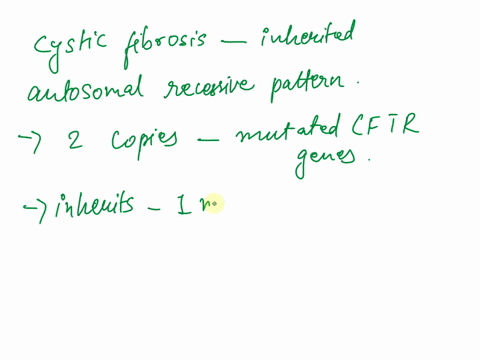 cystic fibrosis – inherited
autosomal recessive pattern.
→ 2 copies – mutated CFTR
genes.
→ inherits – 1